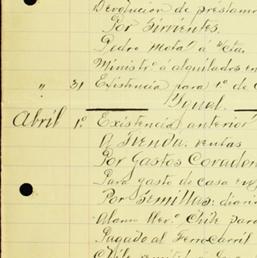 Devolucion de prestamo
Por Sirvientes.
Pedro Mota á c/cta.
Ministro á alquilados en
" 31 Existencia para 1º de
Igual.
Abril 1º Existencia anterior
A Tienda. ventas
Por Gastos Corador
Para gasto de casa
Por Semillas: diario
Chile para
Pagado al Ferrocarril